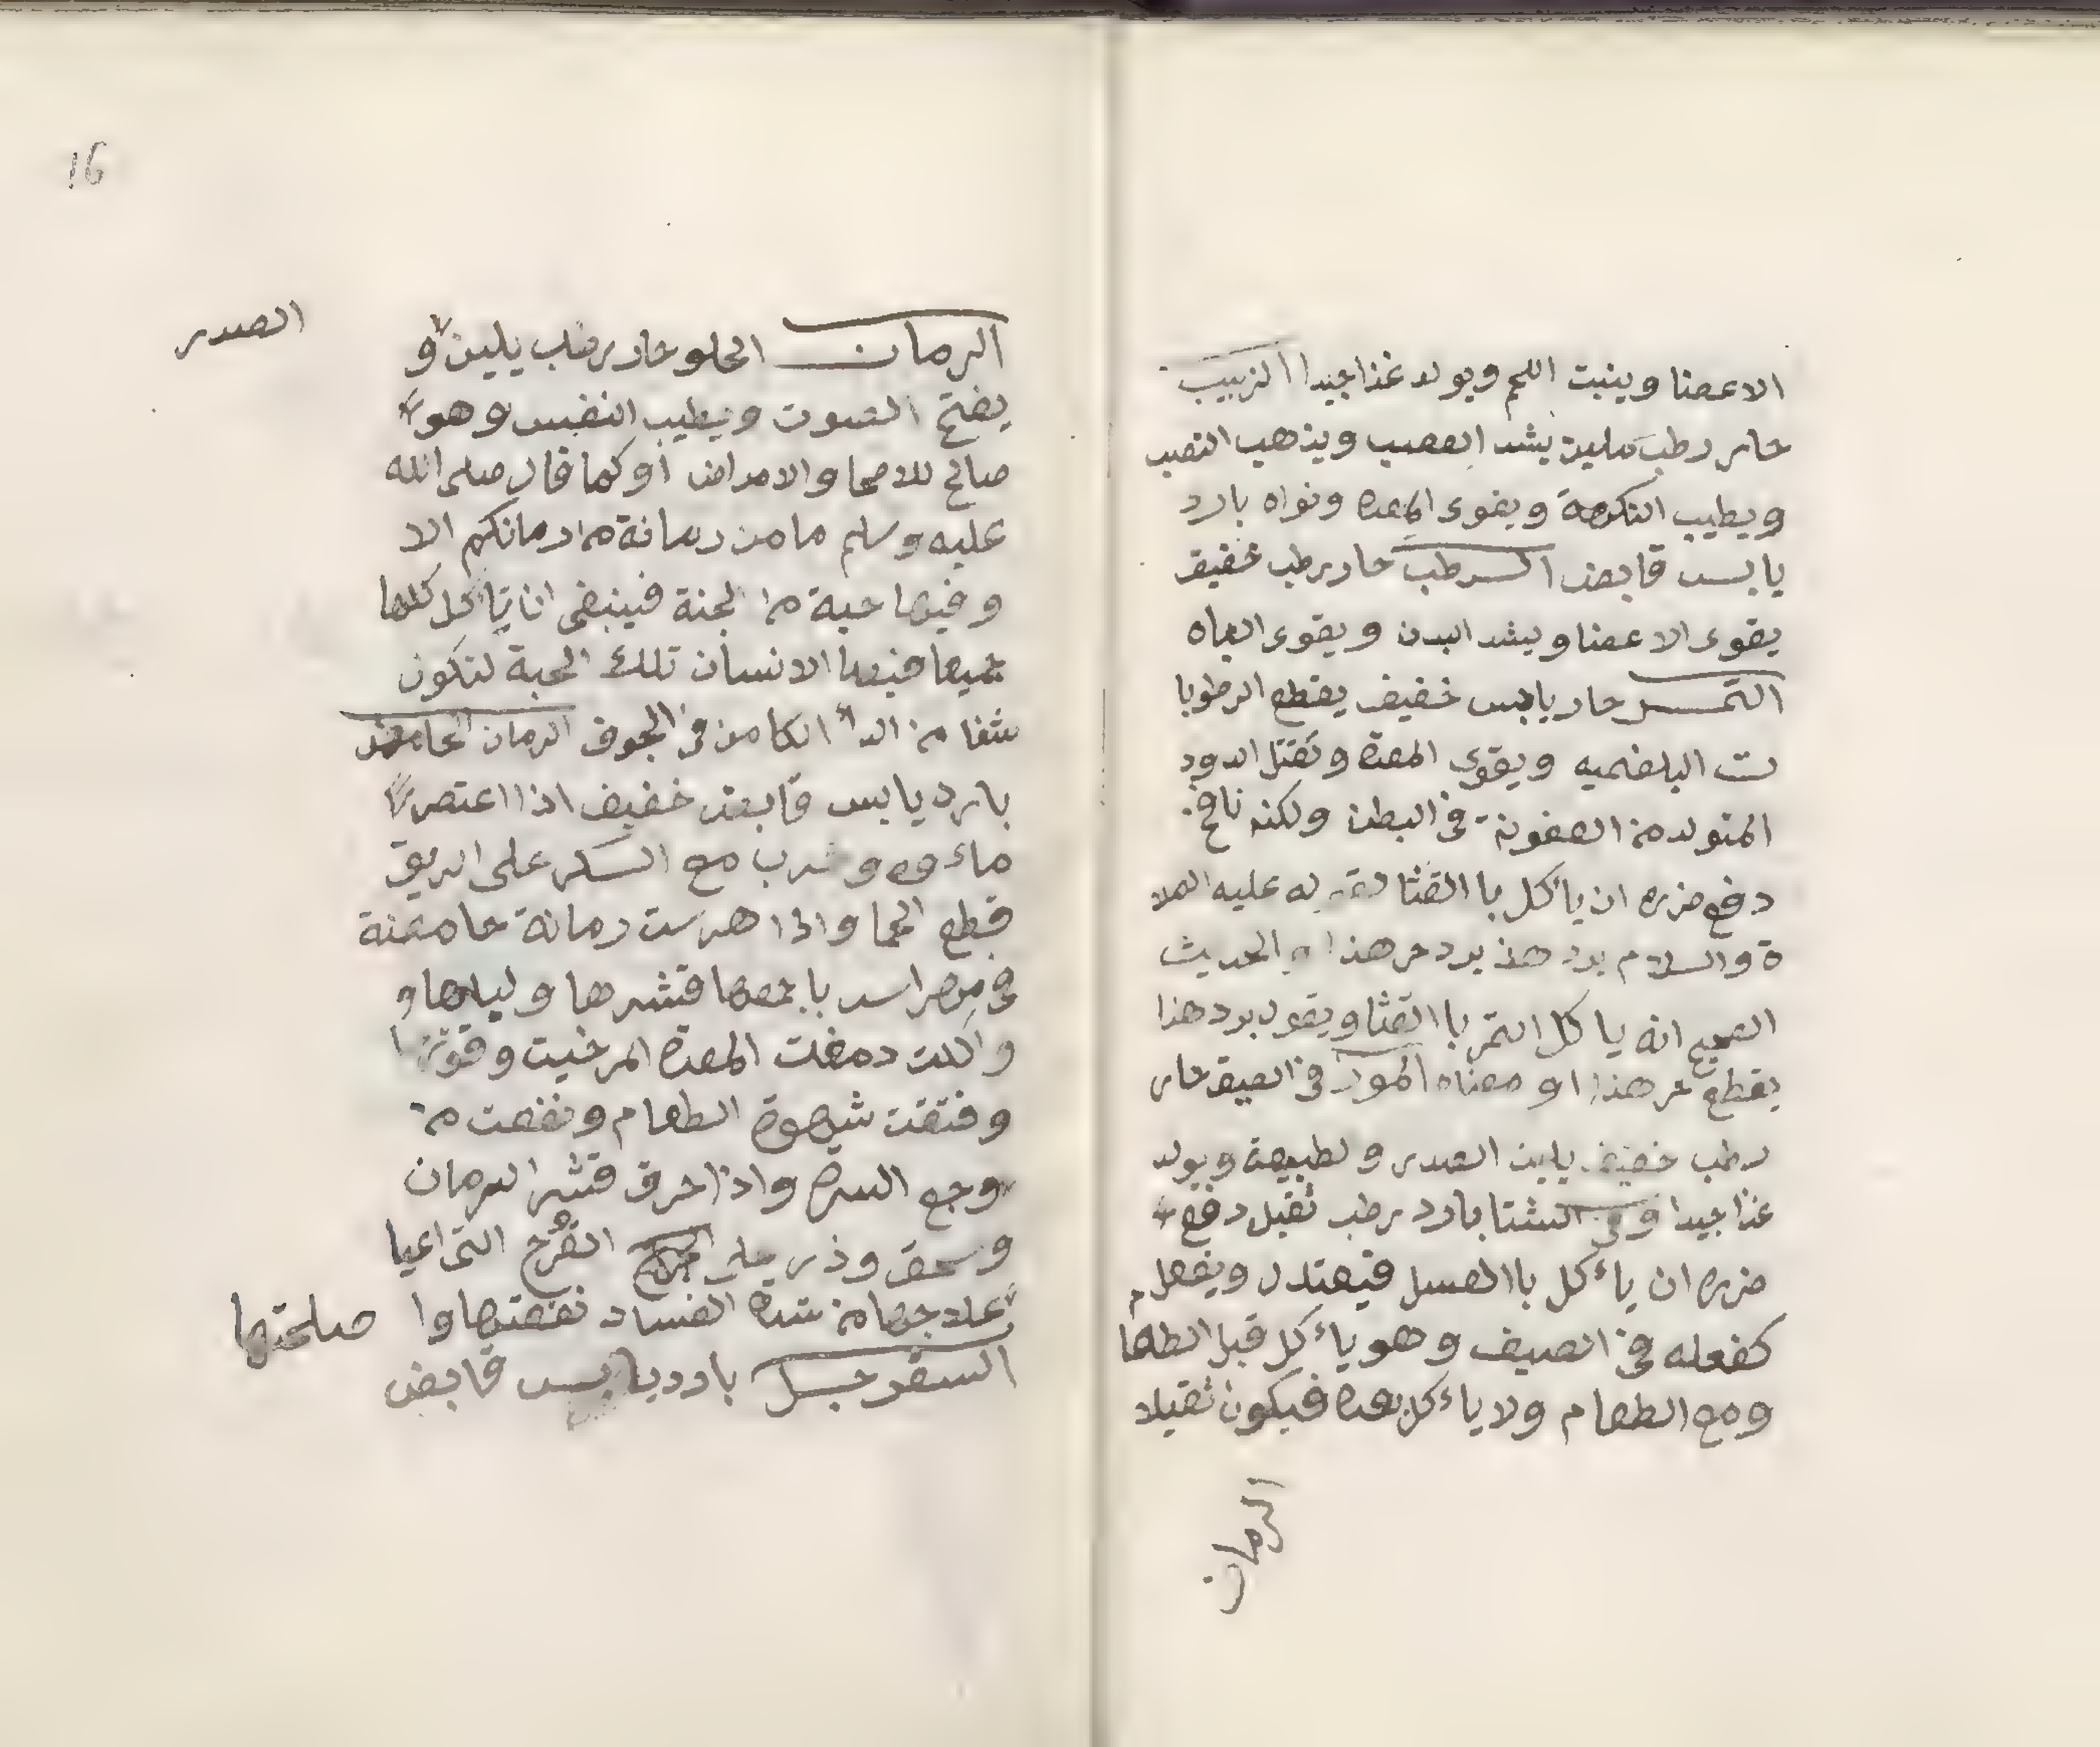 الاعضا وينبت اللحم ويولد غذا جيدا الزبيب
حار رطب ملين يشد العصب ويذهب النصب
ويطيب النكهة ويقوى المعدة ونواه بارد
يابس قابض الرطب حار رطب خفيف
يقوى الاعضا ويشد البدن ويقوى الباه
التمر حار يابس خفيف يقطع الرطوبا
ت البلغميه ويقوى المعدة وتقتل الدود
المتولد من العفونة فى البطن ولكنه
دفع ضرره ان يأكل با القثا لقوله عليه الصلا
ة والسلام برد هذا حر هذا الحديث
الصحيح انه ياكل التمر با القثا ويقول برد هذا
يقطع حر هذا او معناه الموز فى الصيف حار
رطب خفيف يلين الصدر و لطبيعة ويولد
غذا جيدا وفى الشتا بارد رطب ثقيل دفع
ضرره ان يأكل با العسل فيعتدل ويفعل
كفعله فى الصيف وهو يأكل قبل الطعا
م
ومع الطعام ولا يأكل بعده فيكون ثقيلا
الرمان
16
الرمان الحلو حار رطب يلين و
الصدر
يفتح الصوت ويطيب النفس وهو
صالح للاصحا والامراض أو كما قال صلى الله
عليه وسلم ما من رمانة من رمانكم الا
وفيها حبة من الجنة فينبغى ان تأكل كلها
جميعا فيها الانسان تلك الحبة لتكون
شفا من الدأ الكامن فى الجوف الرمان الحامض
بارد يابس قابض خفيف اذا اعتصر
ماءوه وشرب مع السكر على الريق
قطع الحما واذا هرست رمانة حامضة
فى مهراس باجمعها قشرها و لبابها و
واكلت دمغت المعدة المرخيت وقوتها
وفتقت شهوة الطعام ونفعت من
وجع السرة واذا احرق قشر الرمان
وسحق وذر على القرح التى اعيا
علاجها من شدة الفساد نفعتها وا صلحتها
السفرجل بارد يابس قابض